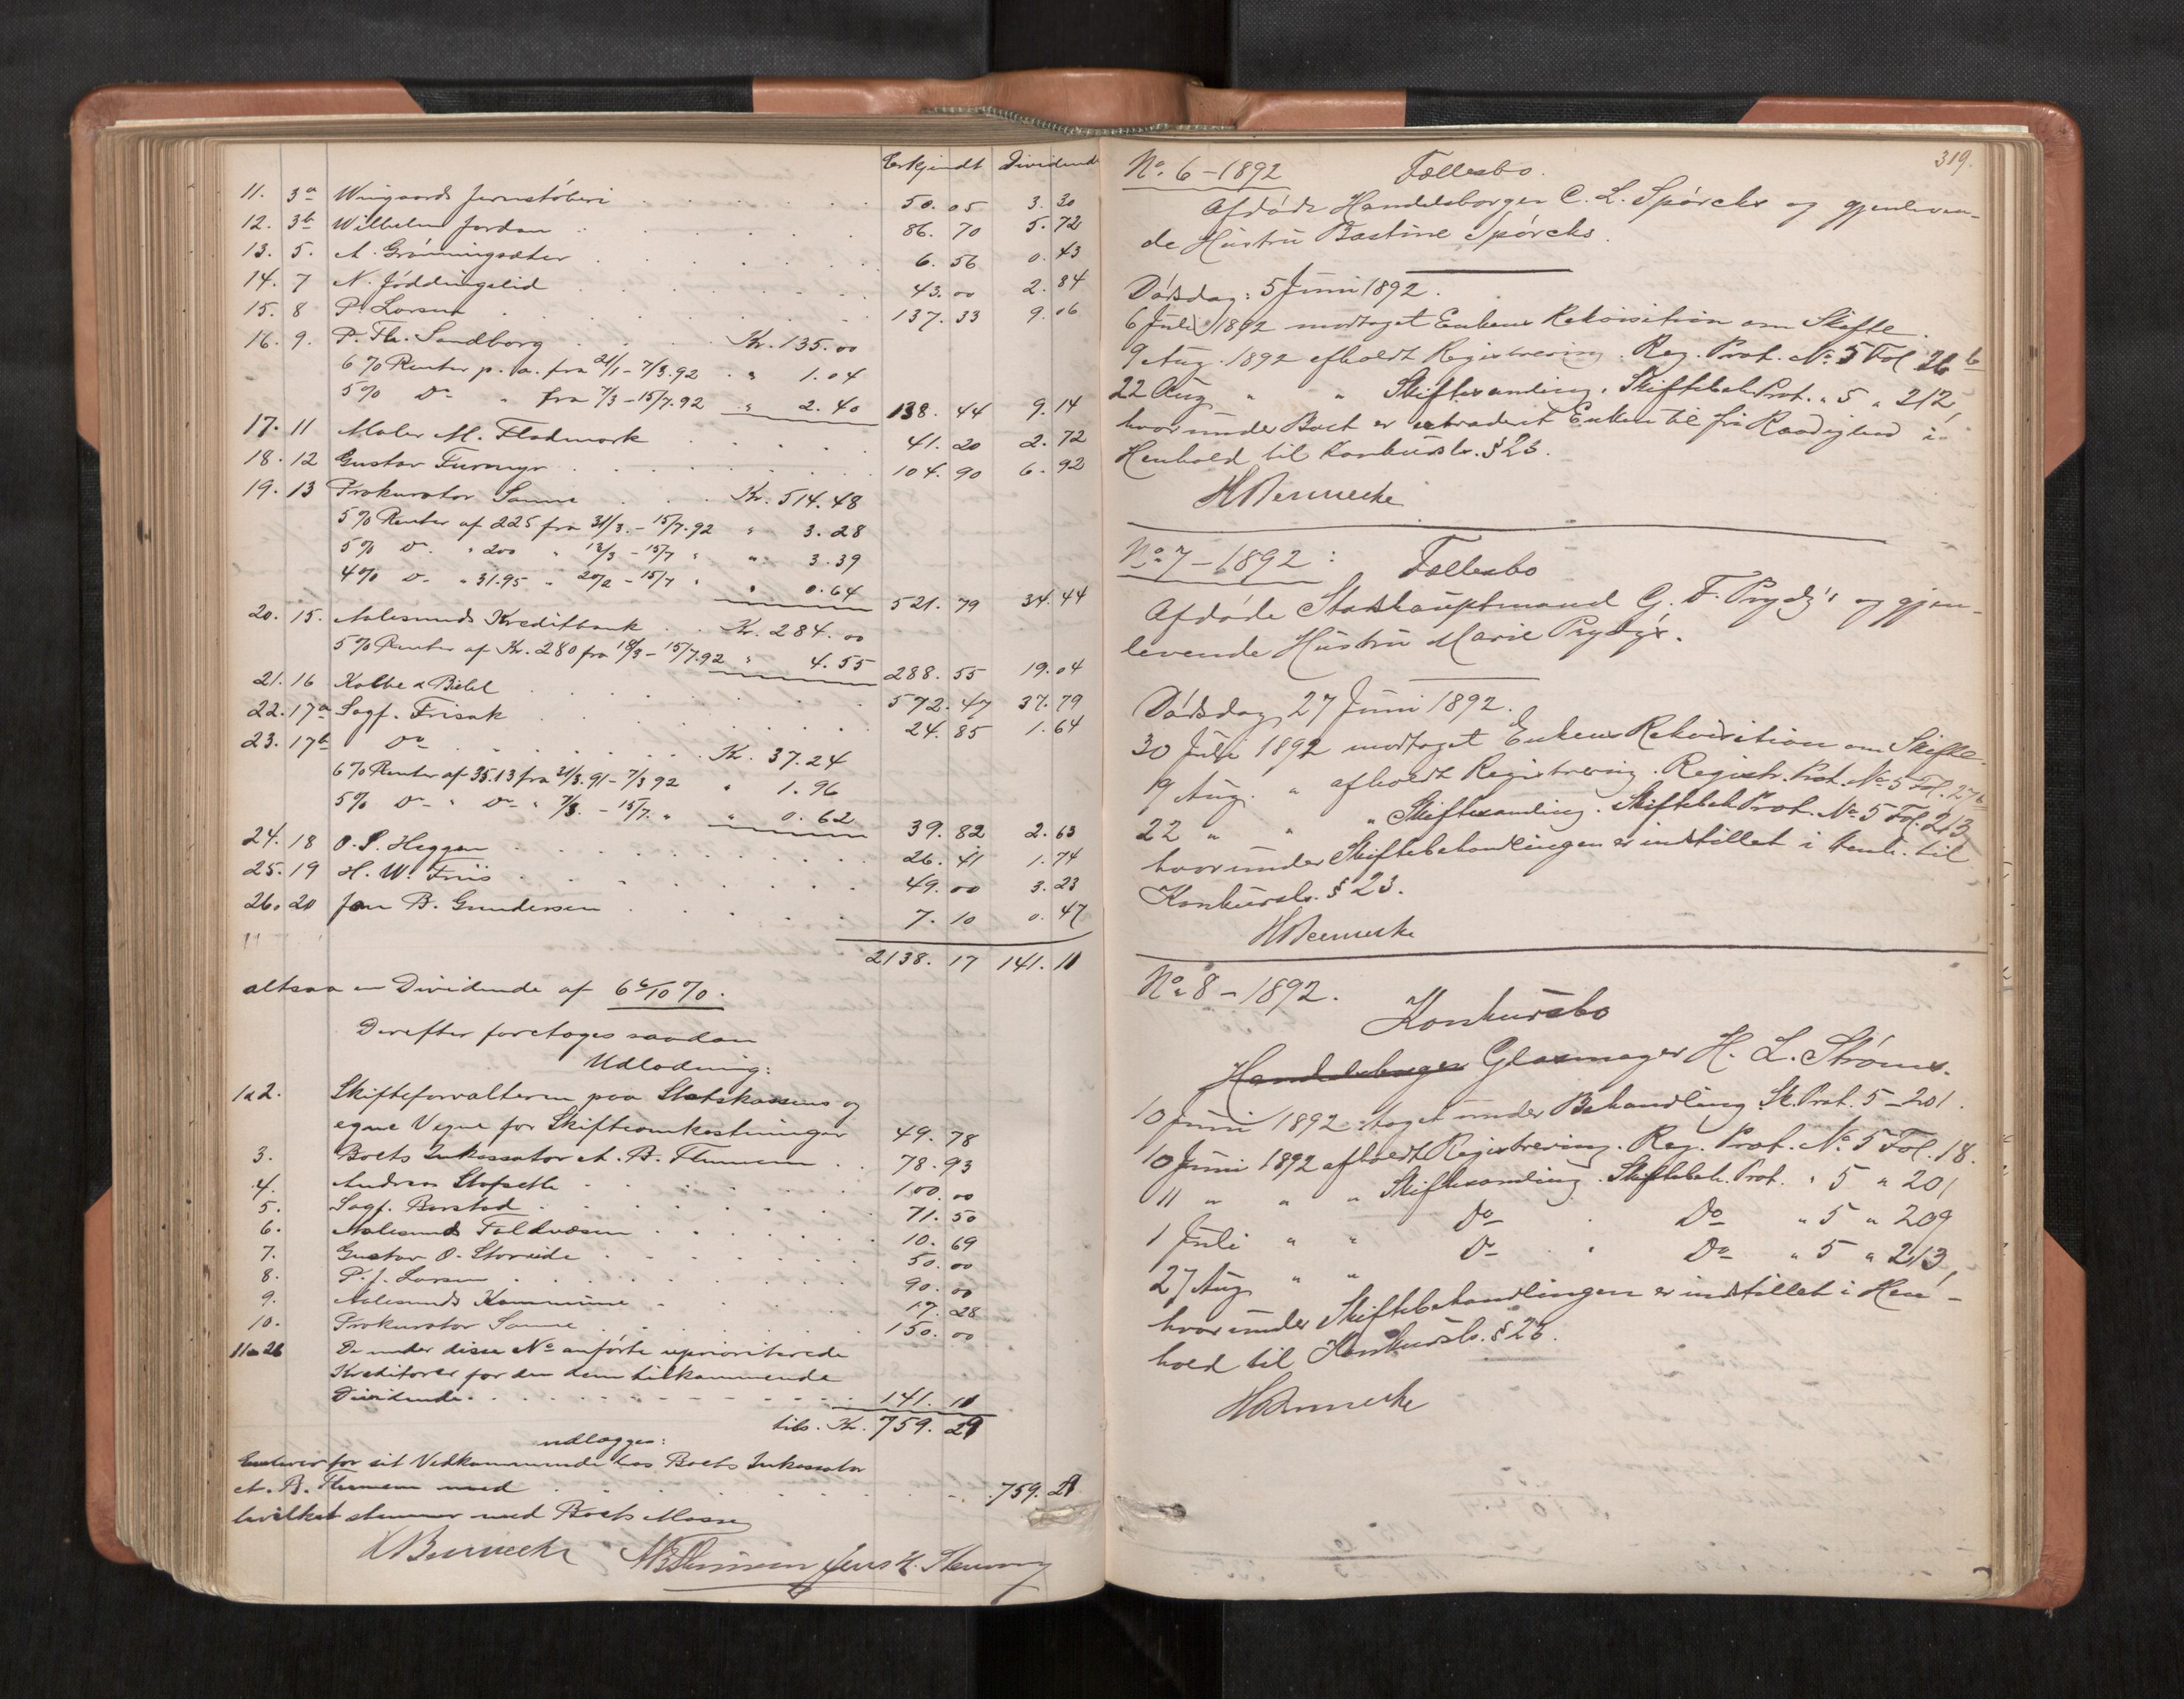 Erkjendt Dividende
11. 3a Wingaards Jernstøberi 50.05 3.30
12. 3b Wilhelm Jordan 86.70 5.72
13. 5. A. Grønningsæter 6.56 0.43
14. 7 N. Jøddingslid 43.00 2.84
15. 8 P. Larsen 137.33 9.06
16. 9. P. Fr. Sandborg Kr. 135.00
6% Renter p. a. fra 21/1 - 7/3.92 " 1.04
5% Do " fra 7/3 - 15/7.92 " 2.40 138.44 9.14
17. 11 Maler M. Flodmark 41.20 2.72
18. 12 Gustav Furmyr 104.90 6.92
19. 13 Prokurator Sanne Kr. 514.48
5% Renter af 225 fra 31/3. - 15/7.92 " 3.28
5% Do " 200 " 12/3 - 15/7 " " 3.39
4% Do " 31.95 " 20/2 - 15/7 " " 0.64 521.79 34.44
20. 15. Aalesunds Kreditbank Kr. 284.00
5% Renter af Kr. 280 fra 18/3 - 15/7.92 " 4.55 288.55 19.04
21. 16 Kolbe & Biehl 572.47 37.79
22. 17a Sagf. Frisak 24.85 1.64
23. 17b Do Kr. 37.24
6% Renter af 35.13 fra 31/3.91 - 7/3 92 " 1.96
5% Do " Do " 7/3. - 15/7. " " 0.62 39.82 2.63
24. 18 O. S. Heggen 26.41 1.74
25. 19 H. W. Friis 49.00 3.23
26. 20 Jan B. Gundersen 7.10 0.47
2138.17 141.11
altsaa en Dividende af 6 6/10 %.
Derefter foretages saadan
Udlodning:
1 & 2. Skifteforvalteren paa Statskassens og
egne Vegne for Skifteomkostninger 49.78
3. Boets Inkassator A. B. Flemmen 78.93
4. Andreas Stafseth 100.00
5. Sagf. Barstad 71.50
6. Aalesunds Toldvæsen 10.69
7. Gustav O. Storeide 50.00
8. P. J. Larsen 90.00
9. Aalesunds Kommune 17.28
10. Prokurator Sanne 150.00
11 a 26 De under disse No anførte uprioriterede
Kreditorer for den dem tilkommende
Dividende 141.11
tils. Kr. 759.29
udlægges:
Enhver for sit Vedkommende hos Boets Inkassator
A. B. Flemmen med 759.29
hvilket stemmer med Boets Masse
HBennecke ABFlemmen Jens
319.
No. 6 - 1892 Fællesbo.
Afdøde Handelsborger C. L. Spørcks og gjenleven-
de Hustru Bastine Spørcks.
Dødsdag: 5 Juni 1892.
6 Juli 1892 modtaget Enkens Rekvisition om Skifte.
9 Aug. 1892 afholdt Registrering. Reg. Prot. No. 5 Fol 26b
22 Aug " " Skiftesamling. Skiftebeh. Prot. " 5 " 212,
hvorunder Boet er extraderet Enken til fri Raadighed i
Henhold til Konkursl. § 23.
HBennecke
No. 7 - 1892: Fællesbo
Afdøde Stadshauptmand G. F. Prydz's og gjen-
levende Hustru Marie Prydz's.
Dødsdag 27 Juni 1892.
30 Juli 1892 modtaget Enkens Rekvisition om Skifte.
19 Aug. " afholdt Registrering. Registr. Prot. No. 5 Fol. 27b
22 " " " Skiftesamling. Skiftebeh. Prot. No. 5 Fol. 213
hvorunder Skiftebehandlingen er indstillet i Henh. til
Konkursl. § 23.
HBennecke
No. 8 - 1892.
Konkursbo
Handelsborger Glasmager H. L. Strøms.
10 Juni 1892 taget under Behandling Sk. Prot. 5 - 201.
10 Juni 1892 afholdt Registrering. Reg. Prot. No. 5 Fol. 18.
11 " " " Skiftesamling. Skiftebeh. Prot. " 5 " 201
1 Juli " " Do Do " 5 " 209
27 Aug. " " Do " Do " 5 " 213,
hvorunder Skiftebehandlingen er indstillet i Hen-
hold til Konkursl. § 23.
HBennecke